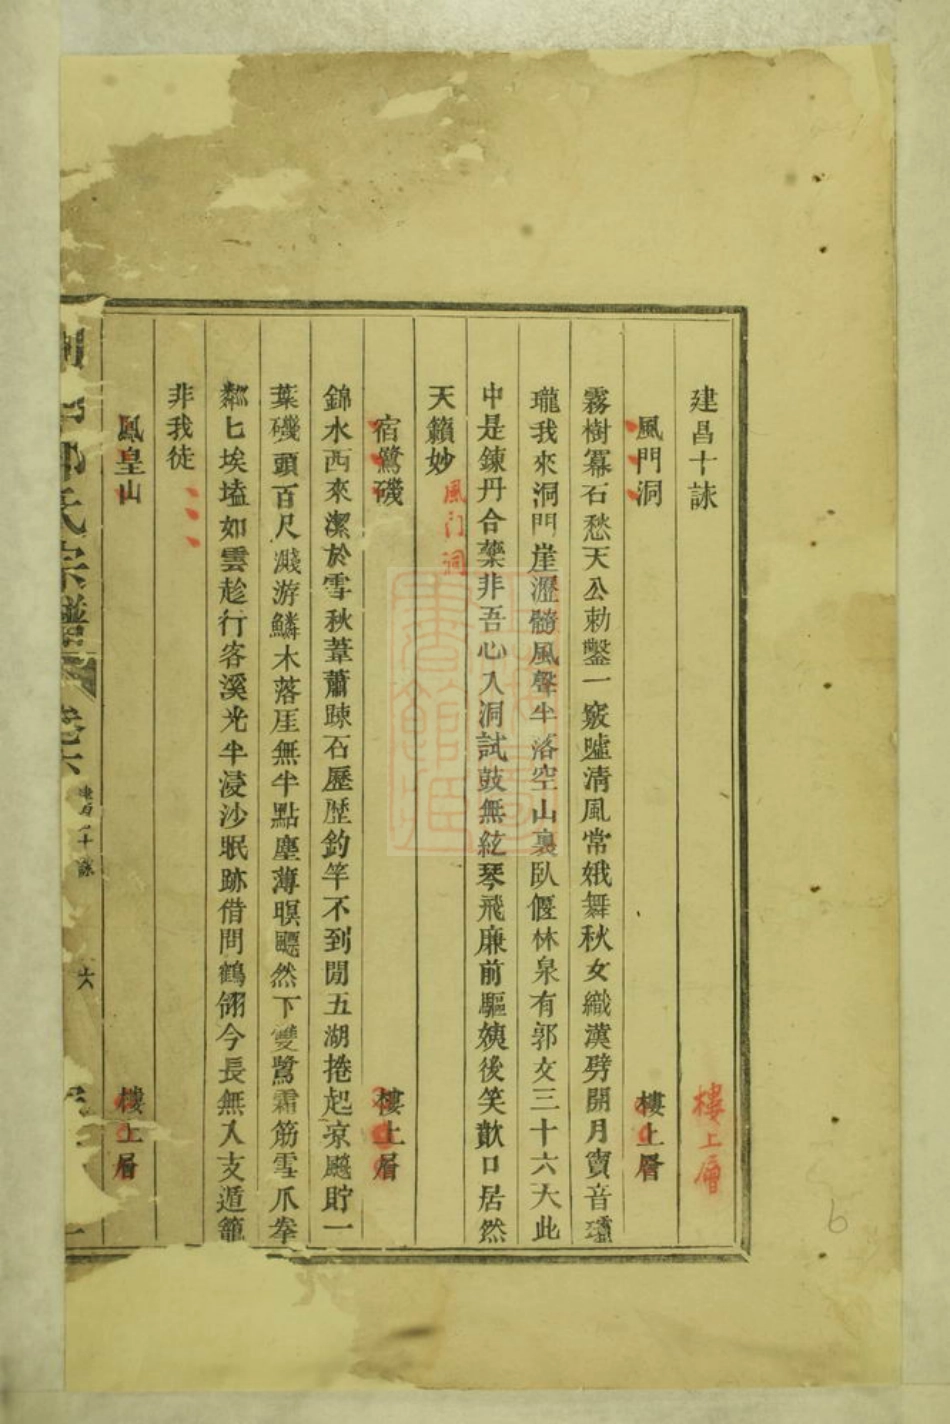 建昌十詠
樓上層
風門洞
樓上層
霧樹冪石愁天公勅鑿一竅噓清風常娥舞秋女織漢劈開月竇音瓏
瓏我來洞門崖瀝髓風聲半落空山裏臥偃林泉有郭文三十六大此
中是鍊丹合藥非吾心入洞試鼓無絃琴飛廉前驅姨後笑歕口居然
天籟妙
風门洞
宿鷺磯
樓上層
錦水西來潔於雪秋葦蕭踈石歷歴釣竿不到閒五湖捲起凉颸貯一
葉磯頭百尺濺游鱗木落厓無半點塵薄暝飃然下雙鷺霜筋雪爪拳
鄰匕埃壒如雲趁行客溪光半浸沙眠跡借問鶴翎今長無人支遁籠
非我徒
鳳皇山
樓上層
氏宗譜
卷六
十詠
六